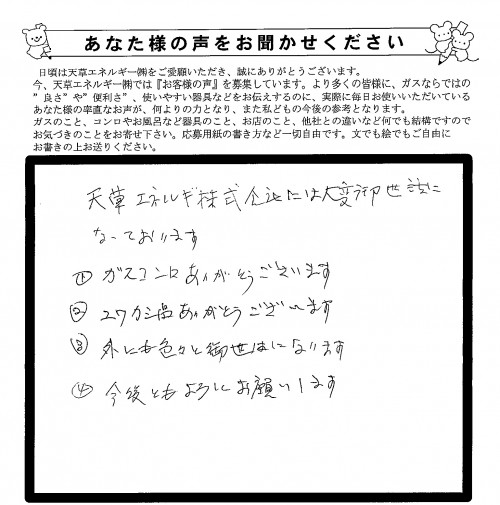 あなた様の声をお聞かせください
日頃は天草エネルギー㈱をご愛顧いただき、誠にありがとうございます。
今、天草エネルギー㈱では『お客様の声』を募集しています。より多くの皆様に、ガスならではの
”良さ”や”便利さ”、使いやすい器具などをお伝えするのに、実際に毎日お使いいただいている
あなた様の率直なお声が、何よりの力となり、また私どもの今後の参考となります。
ガスのこと、コンロやお風呂など器具のこと、お店のこと、他社との違いなど何でも結構ですので
お気づきのことをお寄せ下さい。応募用紙の書き方など一切自由です。文でも絵でもご自由に
お書きの上お送りください。
天草エネルギ株式会社には大変御世話に
なっております
① ガスコンロありがとうございます
② ユワカシ器ありがとうございます
③ 外にも色々と御世話になります
④ 今後ともよろしくお願いします